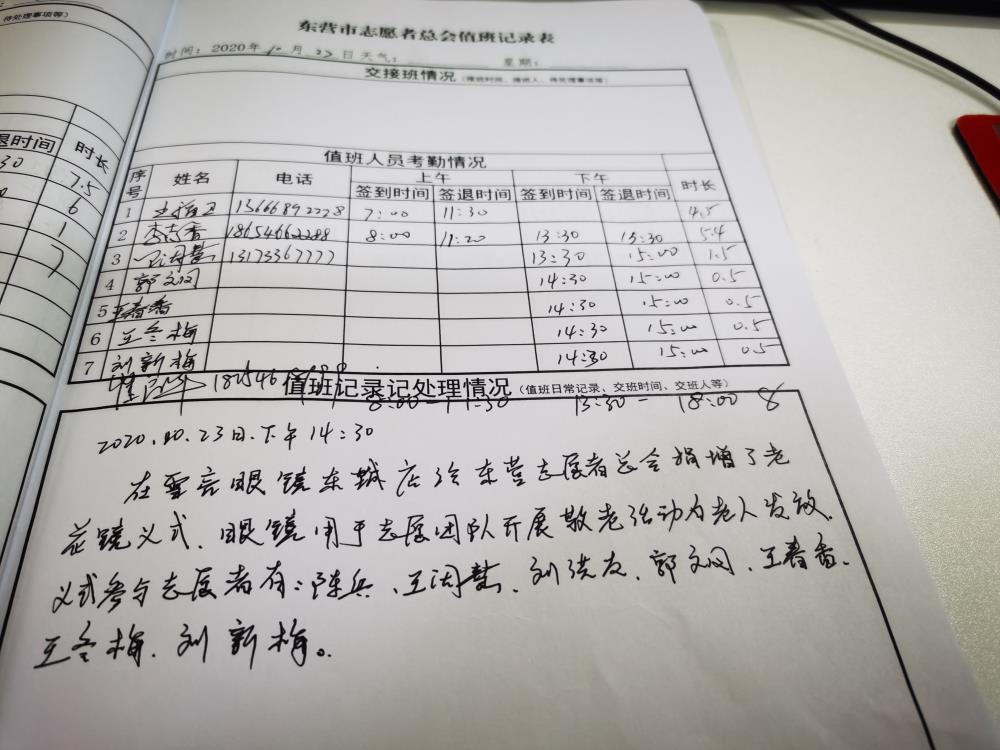 待处理事项等）
退时间 时长
30 7.5
6
1
7
东营市志愿者总会值班记录表
时间：2020年10月23日天气： 星期：
交接班情况（接班时间、接班人、待处理事项等）
值班人员考勤情况
序号 姓名 电话 上午 下午 时长
签到时间 签退时间 签到时间 签退时间
1 13666892228 7:00 11:30 4.5
2 李志香 18654662288 8:00 11:20 13:30 15:30 5.4
3 王闰慧 13173367777 13:30 15:00 1.5
4 郭文闵 14:30 15:00 0.5
5 王春香 14:30 15:00 0.5
6 王冬梅 14:30 15:00 0.5
7 刘新梅 14:30 15:00 0.5
值班记录记处理情况（值班日常记录、交班时间、交班人等）
8:00-11:30 13:30-18:00 8
2020.10.23日.下午14:30
在雪亮眼镜东城店给东营志愿者总会捐增了老
花镜义式、眼镜用于志愿团队开展敬老活动为老人发放.
义式参与志愿者有:陈兵、王闰慧、刘洪友、郭文闵、王春香、
王冬梅、刘新梅。